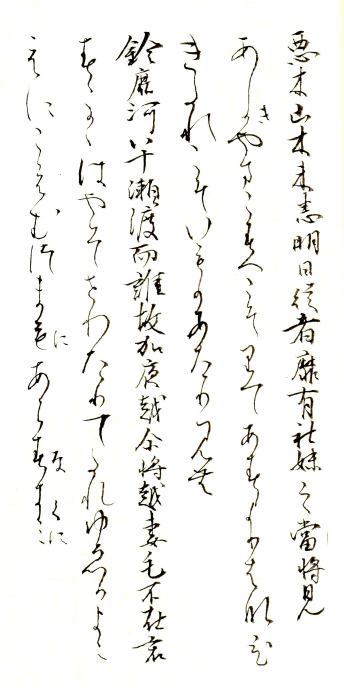 悪木山木末悉明日従者靡有社妹之當将見
あしきやまこすゑこそりてあすよりはなひ
きたれこそいもかあたりみむ
鈴鹿河八十瀬渡而誰故加夜越尒将越妻毛不在君
すゝかはやそせわたりてたれゆゑかよこ
えにこえむつまも あら なくに